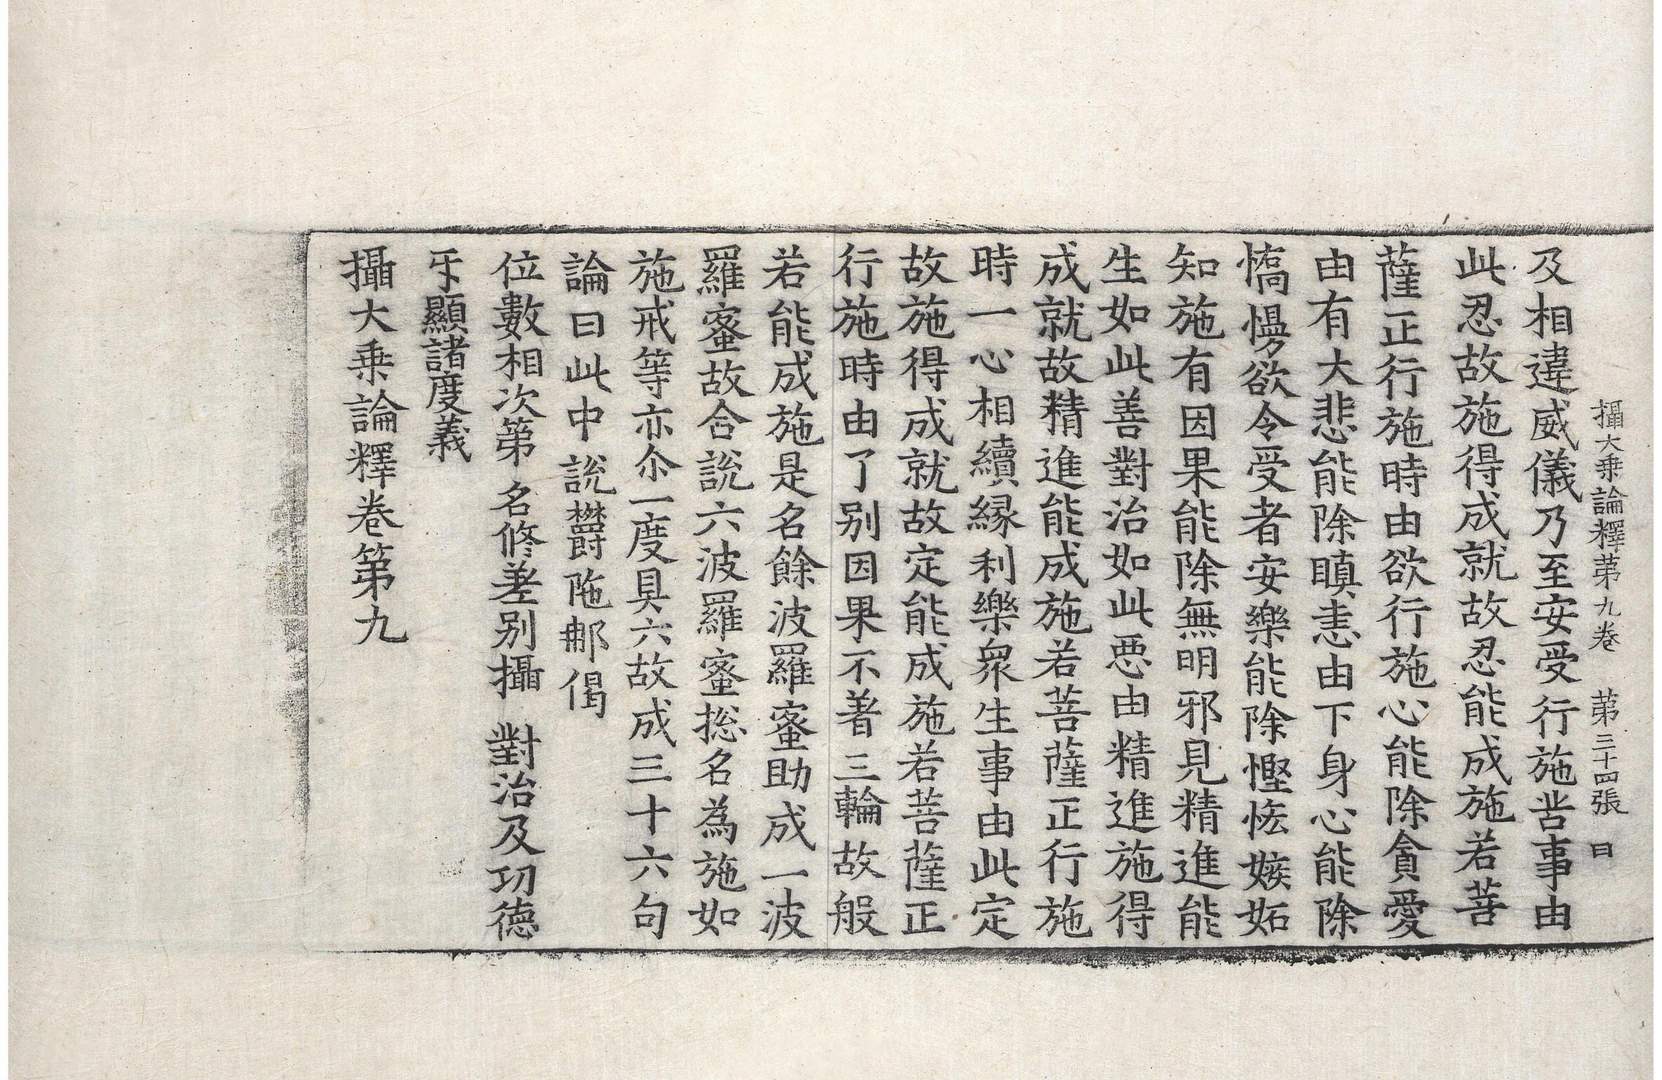 攝大乗論釋第九卷　第三十四張　日
及相違威儀乃至安受行施苦事由
此忍故施得成就故忍能成施若菩
薩正行施時由欲行施心能除貪愛
由有大悲能除瞋恚由下身心能除
憍慢欲令受者安樂能除慳悋嫉妬
知施有因果能除無明邪見精進能
生如此善對治如此惡由精進施得
成就故精進能成施若菩薩正行施
時一心相續縁利樂衆生事由此定
故施得成就故定能成施若菩薩正
行施時由了别因果不著三輪故般
若能成施是名餘波羅蜜助成一波
羅蜜故合說六波羅蜜捴名為施如
施戒等亦尒一度具六故成三十六句
論曰此中說欝陁郍偈
位數相次第　名修差别攝　對治及功德
㸦顯諸度義
攝大乗論釋卷第九